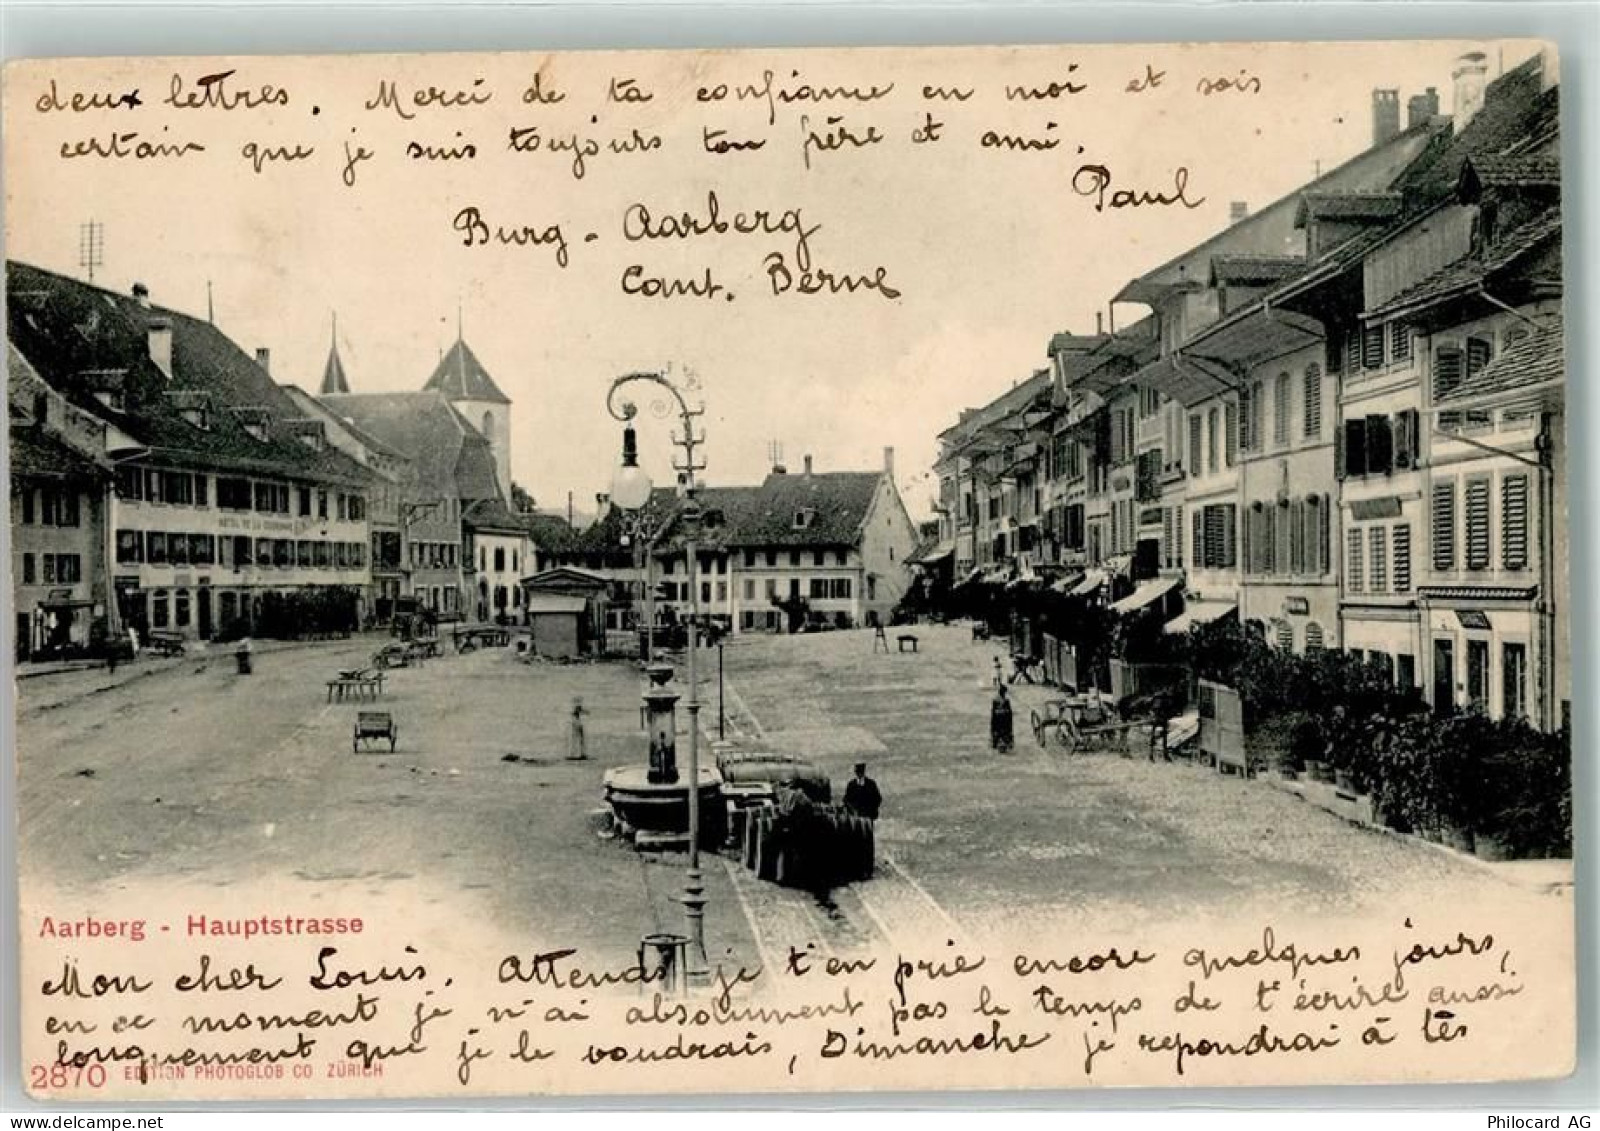 deux lettres. Merci de ta confiance en moi et sois
certain que je suis toujours ton frère et ami.
Paul
Burg - Aarberg
Cant. Berne
HÔTEL DE LA COURONNE
Aarberg - Hauptstrasse
Mon cher Louis. Attends je t'en prie encore quelques jours,
en ce moment je n'ai absolument pas le temps de t'écrire aussi
longuement que je le voudrais, Dimanche je repondrai à tes
2870 EDITION PHOTOGLOB CO ZÜRICH
Philocard AG